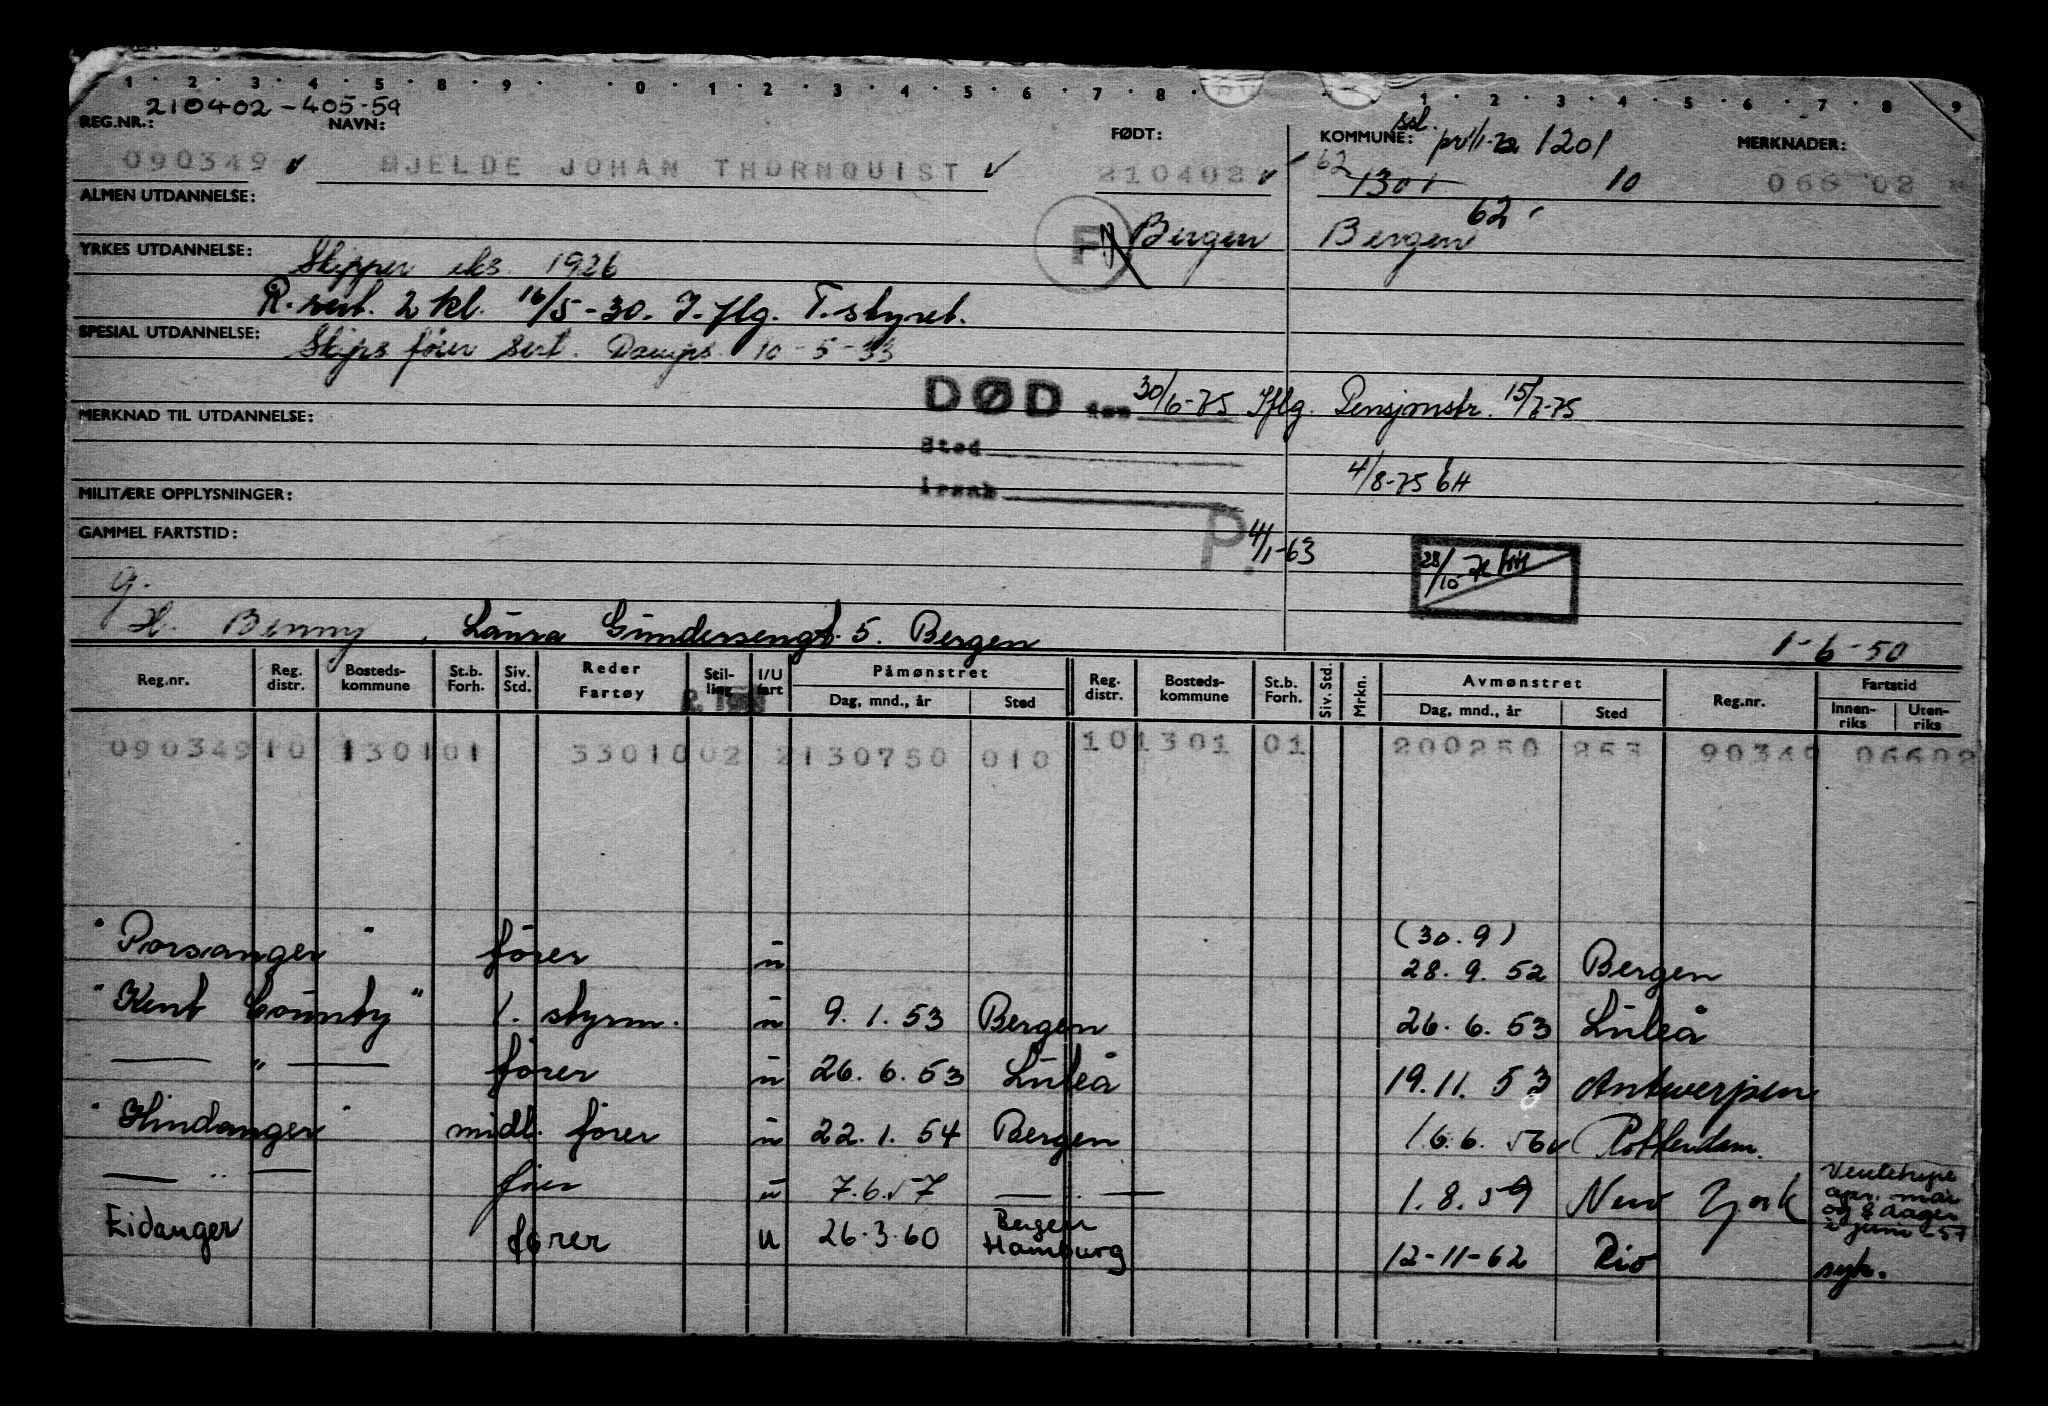 1 · 2 · 3 · 4 · 5 · 8 · 9 · · 0 · 1 · 2 · 3 · 4 · 5 · 6 · 7 · 8 · 1 · 2 · 3 · 4 · 5 · 6 · 7 · 8 · 9
210402 - 405-59
REG.NR.: NAVN: FØDT: KOMMUNE: 1201 MERKNADER:
090349 HJELDE JOHAN THORNQUIST 210402 62 1301 10 066 02
ALMEN UTDANNELSE: 62
F Bergen Bergen
YRKES UTDANNELSE: Skipper eks. 1926
R. sert. 2 kl. 16/5-30. I. flg. T. styret.
SPESIAL UTDANNELSE: Skips fører sert. Damps. 10-5-33
DØD den 30/6-75 Iflg. Pensjonstr. 15/7-75
MERKNAD TIL UTDANNELSE:
Sted
4/8-75 EH
MILITÆRE OPPLYSNINGER: årsak
GAMMEL FARTSTID: P. 4/1-63
28/10-71 HH
g.
H. Benny, Laura Gundersengt. 5. Bergen
1-6-50
Reg.nr. Reg. distr. Bosteds-kommune St.b. Forh. Siv. Std. Reder Fartøy Stil-ling I/U fart Påmønstret Dag, mnd., år Sted Reg. distr. Bosteds-kommune St.b. Forh. Siv. Std. Mrkn. Avmønstret Dag, mnd., år Sted Reg.nr. Fartstid Innen-riks Uten-riks
090349 10 1301 01 3301002 2 130750 010 10 1301 01 200250 253 90349 06602
"Porsanger" fører u (30.9) 28.9.52 Bergen
"Kent County" 1. styrm. u 9.1.53 Bergen 26.6.53 Luleå
— " — fører u 26.6.53 Luleå 19.11.53 Antwerpen
"Hindanger" midl. fører u 22.1.54 Bergen 16.6.56 Rotterdam.
— " — fører u 7.6.57 — " — 1.8.59 New York Ventehyre apr. mai og 8 dager i juni 57
Eidanger fører u 26.3.60 Bergen Hamburg 12-11-62 Rio syk.